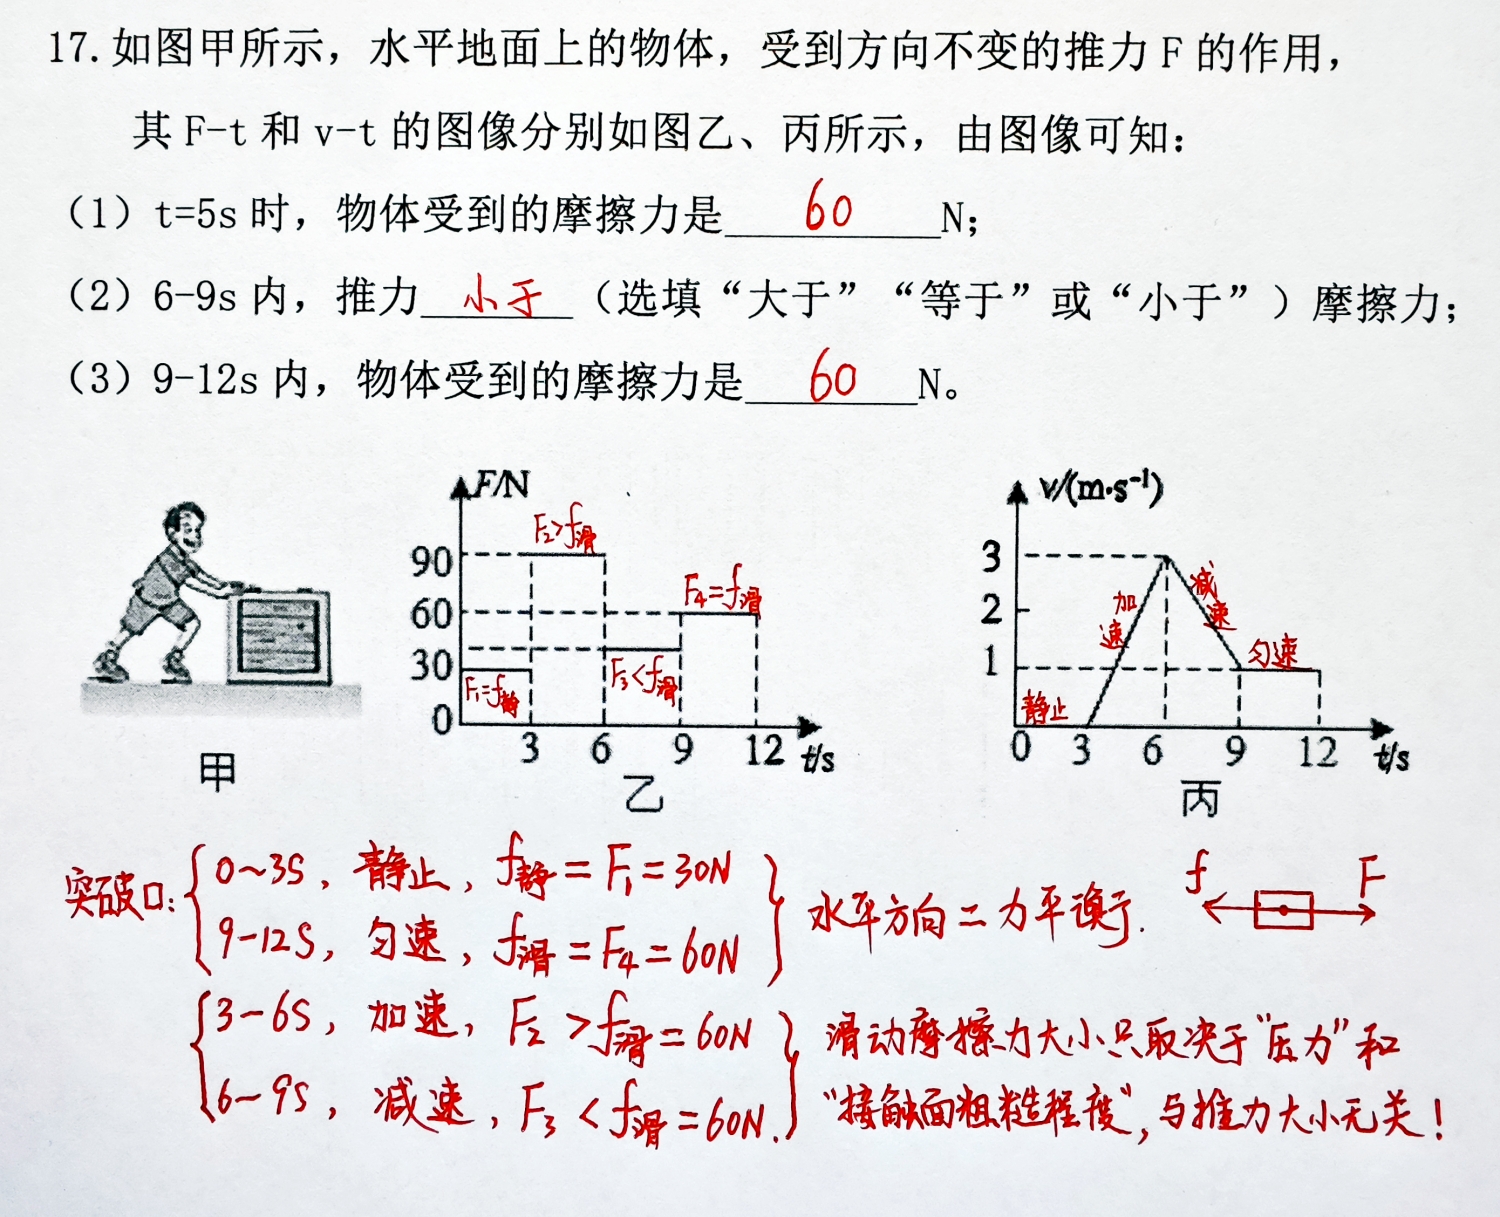 17.如图甲所示，水平地面上的物体，受到方向不变的推力 F 的作用，
其 F-t 和 v-t 的图像分别如图乙、丙所示，由图像可知：
（1）t=5s 时，物体受到的摩擦力是 60 N；
（2）6-9s 内，推力 小于 （选填“大于”“等于”或“小于”）摩擦力；
（3）9-12s 内，物体受到的摩擦力是 60 N。
F/N
90
60
30
0
3 6 9 12 t/s
F₂>f滑
F₄=f滑
F₃<f滑
F₁=f静
v/(m·s⁻¹)
3
2
1
0 3 6 9 12 t/s
加速
减速
匀速
静止
甲
乙
丙
突破口:
0~3S，静止，f静=F₁=30N
9-12S，匀速，f滑=F₄=60N
水平方向二力平衡.
f F
3-6S，加速，F₂>f滑=60N
6~9S，减速，F₃<f滑=60N.
滑动摩擦力大小只取决于“压力”和
“接触面粗糙程度”，与推力大小无关！